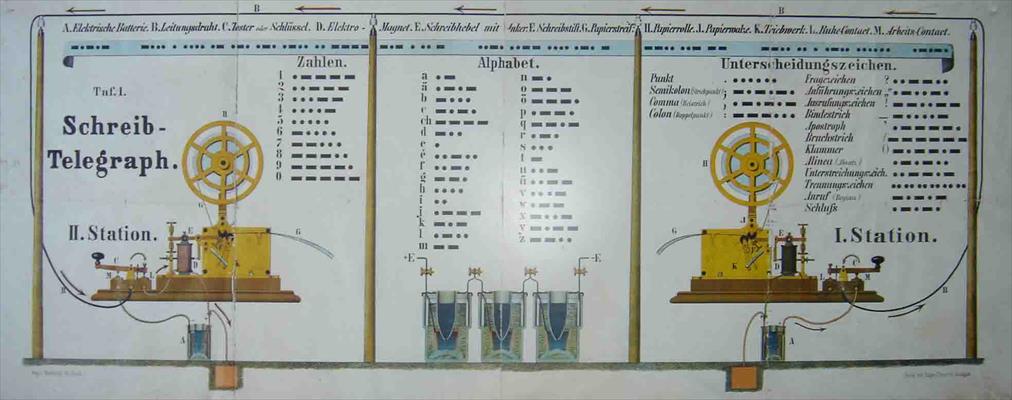 B
B
A. Elektrische Batterie. B. Leitungsdraht. C. Taster oder Schlüssel. D. Elektro-Magnet. E. Schreibhebel mit Anker. F. Schreibstift. G. Papierstreif. H. Papierrolle. J. Papierwalze. K. Triebwerk. L. Ruhe Contact. M. Arbeits-Contact.
Taf. I.
Schreib-
Telegraph.
Zahlen.
1
2
3
4
5
6
7
8
9
0
Alphabet.
a
ä
b
c
ch
d
e
é
f
g
h
i
j
k
l
m
n
o
ö
p
q
r
s
t
u
ü
v
w
x
y
z
Unterscheidungszeichen.
Punkt .
Semikolon (Strichpunkt) ;
Comma (Beistrich) ,
Colon (Doppelpunkt) :
Fragezeichen ?
Anführungszeichen „"
Ausrufungszeichen !
Bindestrich
Apostroph '
Bruchstrich
Klammer ()
Alinea (Absatz)
Unterstreichungszeich.
Trennungszeichen
Anruf
Schluß
II. Station.
I. Station.
+E
-E
H
G
G
E
D
K
C
M
B
A
H
G
J
K
E
D
L
C
M
B
A